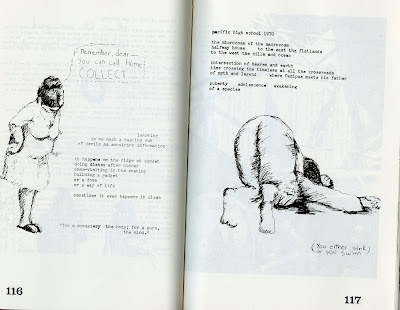 Remember, dear—
You can call home!
COLLECT...
learning
is as much a casting out
of devils as acquiring information
it happens on the ridge at sunset
doing dishes after dinner
conversating in the evening
building a gadget
or a dome
or a way of life
sometimes it even happens in class
"for a monastery the body; for a guru,
the mind."
116
pacific high school 1970
the microcosm of the macrocosm
halfway house to the east the flatlands
to the west the hills and ocean
intersection of heaven and earth
time crossing the timeless at all the crossroads
of myth and legend where Oedipus meets his father
puberty adolescence awakening
of a species
(You either sink)
or you swim
117